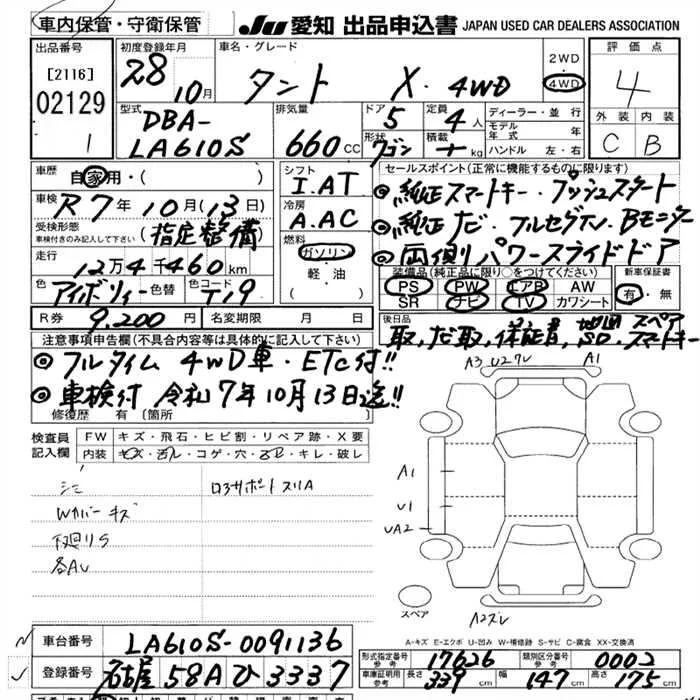 車内保管・守衛保管 JU 愛知 出品申込書 JAPAN USED CAR DEALERS ASSOCIATION
出品番号 初度登録年月 車名・グレード 2WD・4WD 評価点
[2116] 28 10月 タント X・4WD 4
02129 型式 排気量 ドア 5 定員 4人 ディーラー・並行 外装 内装
1 DBA-LA610S 660cc 形状 ワゴン 積載 kg モデル年式 年 ハンドル 左・右 C B
車歴 自家用・( ) シフト I.AT セールスポイント(正常に機能するものに限ります)
車検 R7年10月(13日) 冷房 A.AC ◎純正スマートキー・プッシュスタート
受検形態 車検付きのみ記入して下さい (指定整備) 燃料 ガソリン・軽油 ◎純正ナビ・フルセグTV・Bモニター
走行 12万4千460km ◎両側パワースライドドア
色 アイボリー 色替 色コード T19 装備品(純正品に限り○をつけてください) 新車保証書
PS PW エアB AW 有・無
SR ナビ TV カワシート
R券 9.200円 名変期限 月 日 後日品
取,ナビ取,保証書,地図SD,スペアスマートキー
注意事項申告欄(不具合内容等は具体的に記入して下さい)
◎フルタイム4WD車・ETC付!!
◎車検付 令和7年10月13日迄!!
修復歴 有 [箇所
検査員記入欄 FW キズ・飛石・ヒビ割・リペア跡・X要
内装 キズ・汚レ・コゲ・穴・キレ・破レ
シミ ロアサポートスリA
Wカバーキズ
下廻りS
各AU
A3 U2 A1
A1
U1
UA2
スペア
A2
A-キズ E-エクボ U-凹み W-補修跡 S-サビ C-腐食 XX-交換済
車台番号 LA610S-0091136 形式指定番号 参考 17626 類別区分番号 参考 0002
登録番号 名古屋 58A ひ 3337 車庫証明用 参考 長さ 339cm 幅 147cm 高さ 175cm